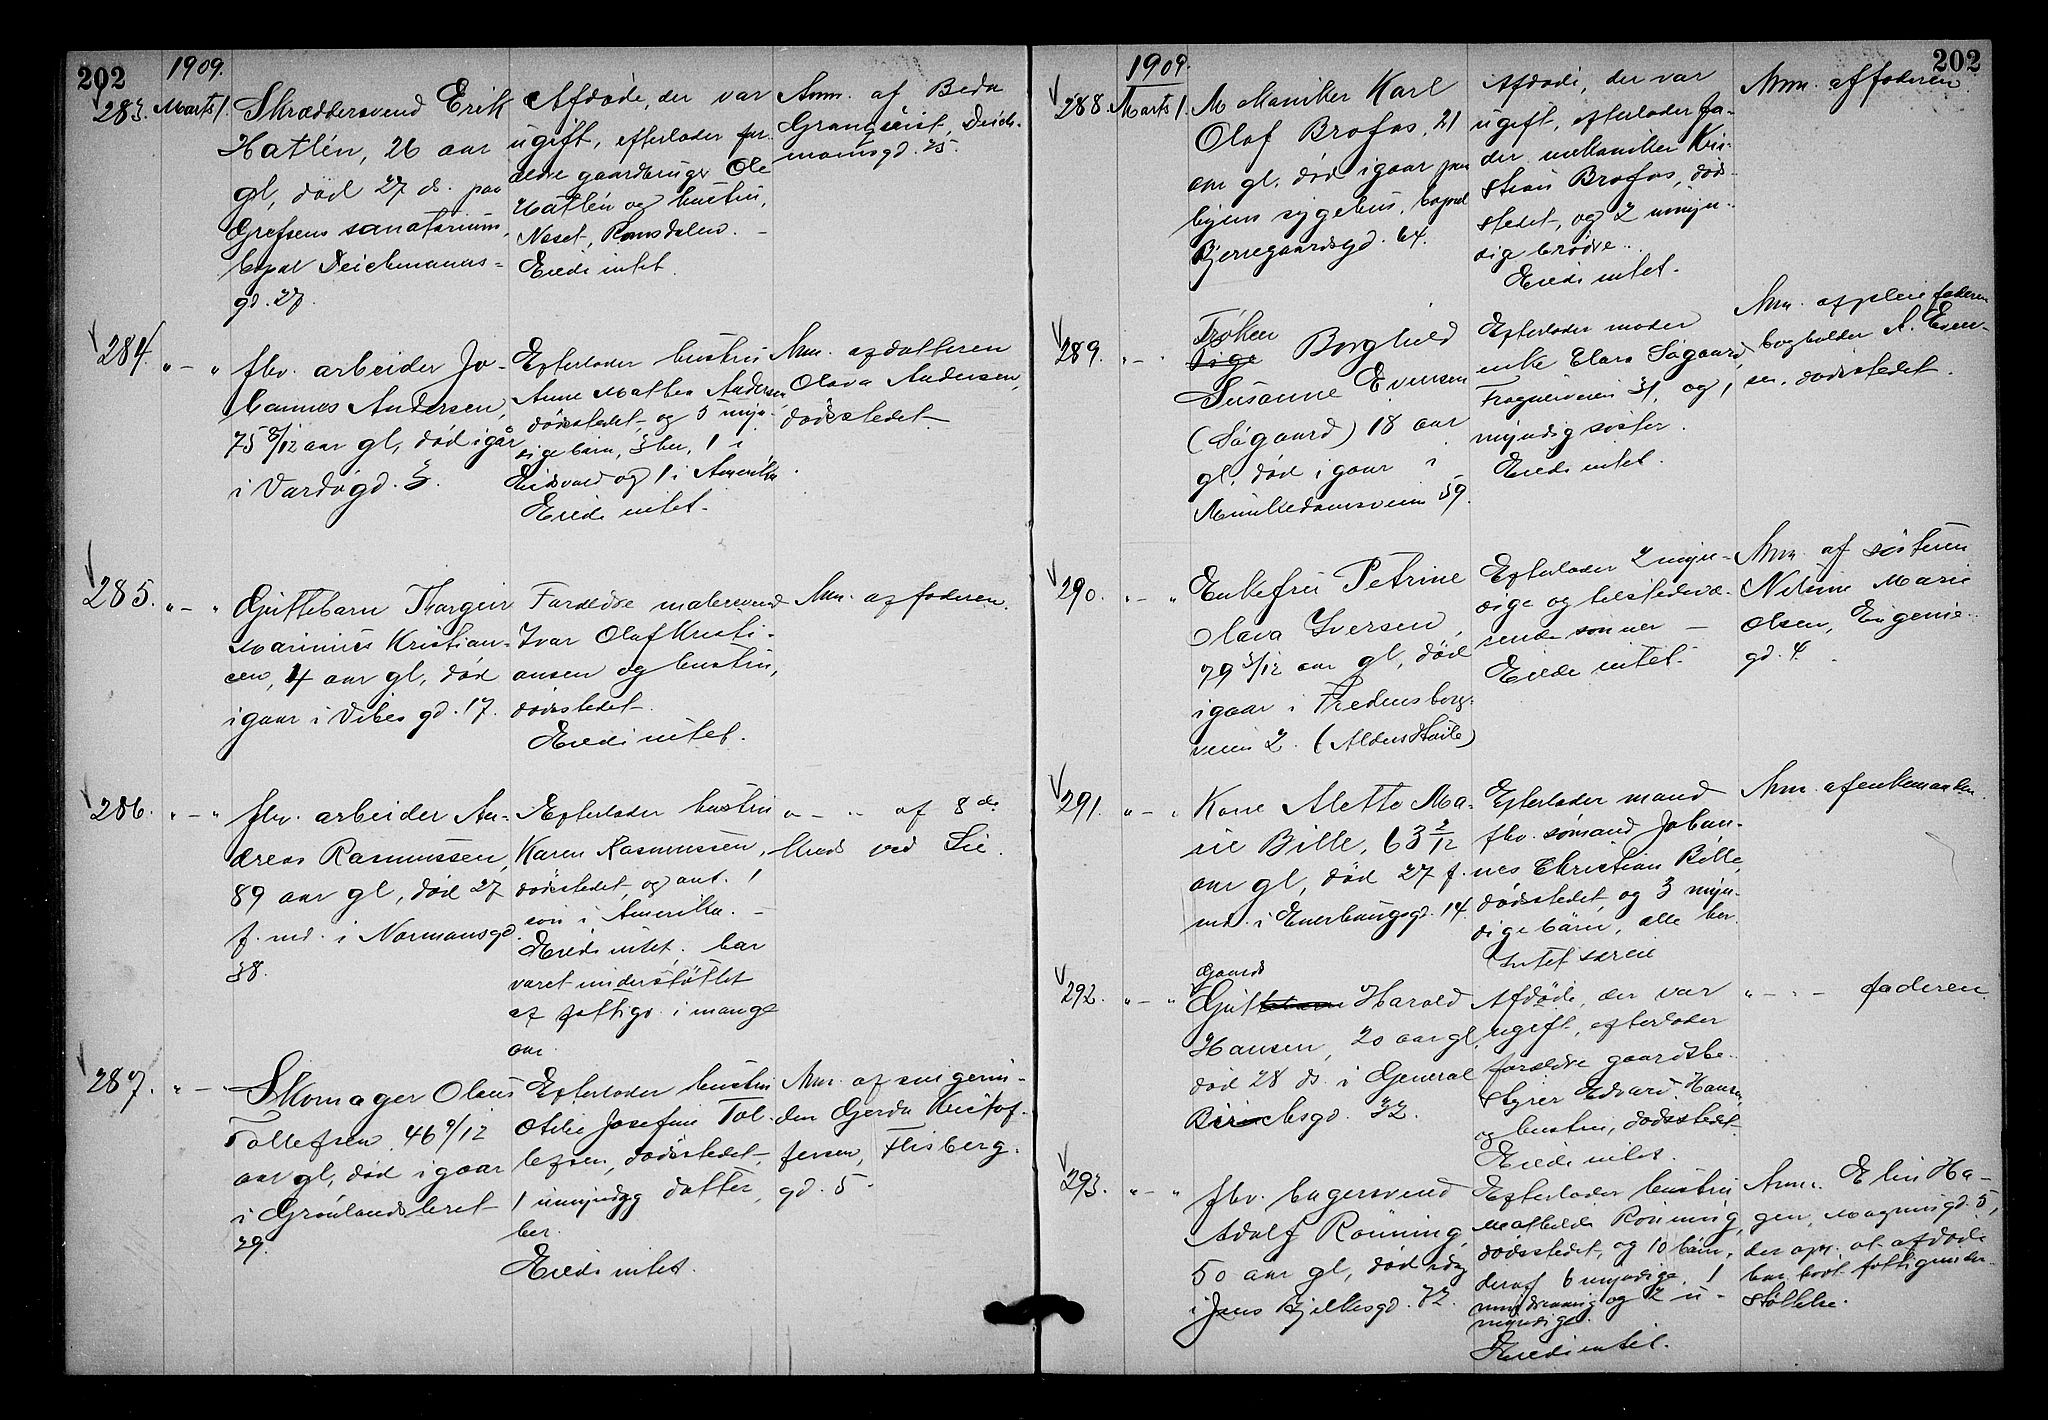 202
1909.
283. Marts 1.
Skræddersvend Erik
Hatlén, 26 aar
gl, død 27 ds. paa
Grefsens sanatorium,
bopæl Deichmanns-
gd. 27.
Afdøde, der var
ugift, efterlader for-
ældre gaardbruger Ole
Hatlén og hustru,
Nesset, Romsdalen. -
Eiede intet.
Anm. af Beda
Granqvist, Deich-
mansgd. 25.
284. " - "
fhv. arbeider Jo-
hannes Andersen,
75 8/12 aar gl, død igår
i Vardøgd. 3.
Efterlader hustru
Anne Mathea Andersen,
dødsstedet, og 5 myn-
dige børn, 3 her, 1 i
Eidsvold og 1 i Amerika.
Eiede intet.
Anm. af datteren
Olava Andersen,
dødsstedet.
285. " - "
Guttebarn Thorgeir
Marinius Kristian-
sen, 4 aar gl, død
igaar i Vibes gd. 17.
Forældre malersvend
Ivar Olaf Kristi-
ansen og hustru,
dødsstedet.
Eiede intet.
Anm. af faderen.
286. " - "
fhv. arbeider An-
dreas Rasmussen,
89 aar gl, død 27
f. md. i Normansgd.
38.
Efterlader hustru
Karen Rasmussen,
dødsstedet, og ant. 1
søn i Amerika. -
Eiede intet, har
været understøttet
af fattigv. i mange
aar.
" - " af 8de
kreds ved Lie.
287. " - "
Skomager Olaus
Tollefsen, 46 9/12
aar gl, død igaar
i Grønlandsleret
29.
Efterlader hustru
Otilie Josefine Tol-
lefsen, dødsstedet,
1 umyndig datter,
her.
Eiede intet.
Anm. af svigerin-
den Gerda Kristof-
fersen, Flisberg-
gd. 5.
202
1909.
288. Marts 1.
Mekaniker Karl
Olaf Brofos, 21
aar gl, død igaar paa
byens sygehus, bopæl
Bjerregaardsgd. 64.
Afdøde, der var
ugift, efterlader fa-
der mekaniker Kri-
stian Brofos, død-
stedet, og 2 umyn-
dige brødre.
Eiede intet.
Anm. af faderen.
289. " - "
Frøken
Pige Borghild
Susanne Evensen
(Søgaard) 18 aar
gl, død igaar i
Munkedamsveien 59.
Efterlader moder
enke Clara Søgaard,
Frognerveien 31, og 1
myndig søster.
Eiede intet.
Anm. af pleiefaderen
bogholder A. Even-
sen, dødsstedet.
290. " - "
Enkefru Petrine
Olava Iversen,
79 3/12 aar gl, død
igaar i Fredensborg-
veien 2. (Aldershvile)
Efterlader 2 myn-
dige og tilstedevæ-
rende sønner -
Eiede intet.
Anm. af søsteren
Nilsine Marie
Olsen, Eugenie-
gd. 4.
291. " - "
Kone Alette Ma-
rie Bille, 63 2/12
aar gl, død 27 f.
md. i Enerhaugsgd. 14.
Efterlader mand
fhv. sømand Johan-
nes Christian Bille,
dødsstedet, og 3 myn-
dige børn, alle her.
Intet særeie
Anm. af enkemanden.
292. " - "
Gaards
Guttebarn Harald
Hansen, 20 aar gl,
død 28 ds. i General
Birchsgd. 32.
Afdøde, der var
ugift, efterlader
forældre gaardsbe-
styrer Edvard Hansen
og hustru, dødsstedet.
Eiede intet.
" - " - faderen.
293. " - "
fhv. bagersvend
Adolf Rønning,
50 aar gl, død idag
i Jens Bjelkesgd. 72.
Efterlader hustru
Mathilde Rønning,
dødsstedet, og 10 børn,
deraf 6 myndige, 1
mindreaarig og 2 u-
myndige.
Eiede intet.
Anm. Elin Ha-
gen, Magnusgd. 5,
der opg. at afdøde
har havt fattigunder-
støttelse.